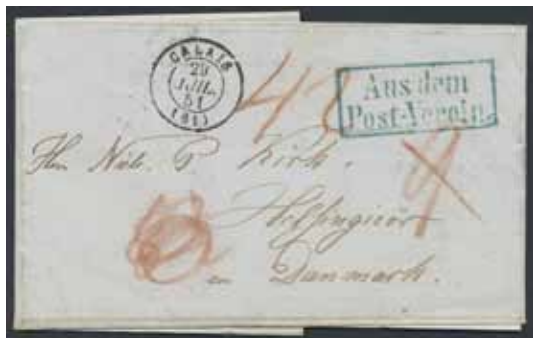 CALAIS
29
JUIL.
51
(61)
Aus dem
Post-Verein.
48
Hrn Nils. P. Kirk.
Helsingieör
in Danmark.